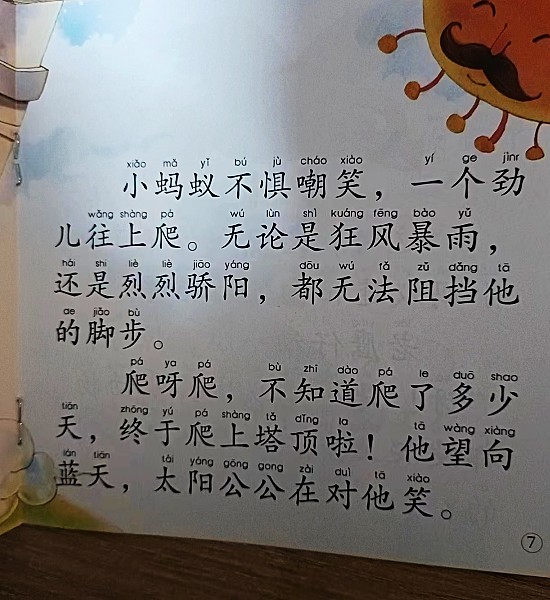 xiǎo mǎ yǐ bú jù cháo xiào yí ge jìnr
小蚂蚁不惧嘲笑，一个劲
wǎng shàng pá wú lùn shì kuáng fēng bào yǔ
儿往上爬。无论是狂风暴雨，
hái shi liè liè jiāo yáng dōu wú fǎ zǔ dǎng tā
还是烈烈骄阳，都无法阻挡他
de jiǎo bù
的脚步。
pá ya pá bù zhī dào pá le duō shao
爬呀爬，不知道爬了多少
tiān zhōng yú pá shàng tǎ dǐng la tā wàng xiàng
天，终于爬上塔顶啦！他望向
lán tiān tài yáng gōng gong zài duì tā xiào
蓝天，太阳公公在对他笑。
7